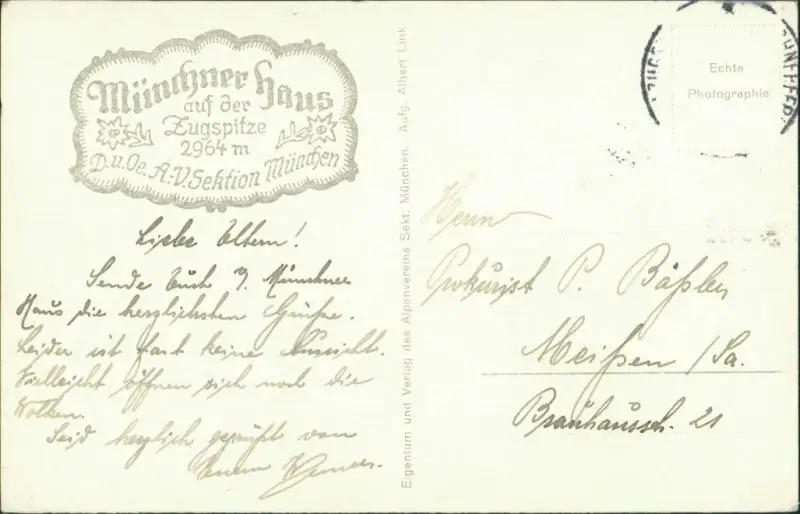 Münchner Haus
auf der
Zugspitze
2964 m
D.u.Oe. A.-V. Sektion München
Liebe Eltern!
Sende Euch v. Münchner
Haus die herzlichsten Grüße.
Leider ist fast keine Aussicht.
Vielleicht öffnen sich noch die
Wolken.
Seid herzlich gegrüßt von
Eurem Werner.
Eigentum und Verlag des Alpenvereins Sekt. München. Aufg. Albert Link
Echte
Photographie
Herrn
Prokurist P. Bäßler
Meißen /Sa.
21